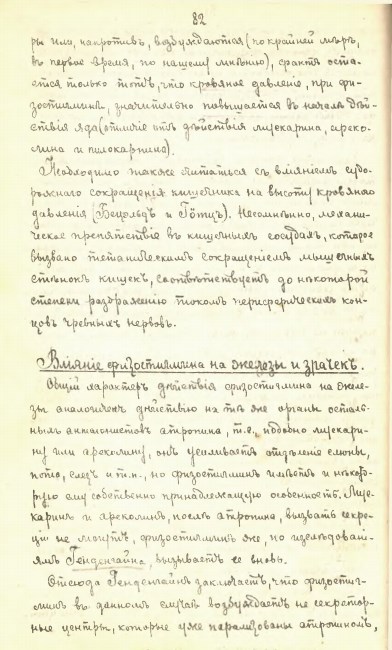 82
ры или, напротивъ, возбуждаются (по крайней мѣрѣ,
въ первое время, по нашему мнѣнію), фактъ оста-
ется только тотъ, что кровяное давленіе, при фи-
зостигминѣ, значительно повышается въ началѣ дѣй-
ствія яда (отличіе отъ дѣйствія мускарина, ареко-
лина и пилокарпина).
Необходимо также считаться съ вліяніемъ судо-
рожнаго сокращенія кишечника на высоту кровяного
давленія (Бецольдъ и Гётцъ). Несомнѣнно, механи-
ческое препятствіе въ кишечныхъ сосудахъ, которое
вызвано тетаническимъ сокращеніемъ мышечныхъ
стѣнокъ кишекъ, соотвѣтствуетъ до нѣкоторой
степени раздраженію токомъ периферическихъ кон-
цовъ чревныхъ нервовъ.
Вліяніе физостигмина на железы и зрачекъ.
Общій характеръ дѣйствія физостигмина на желе-
зы аналогиченъ дѣйствію на тѣ же органы осталь-
ныхъ антагонистовъ атропина, т.е., подобно мускари-
ну или ареколину, онъ усиливаетъ отдѣленіе слюны,
пота, слезъ и т.п., но физостигминъ имѣетъ и нѣкото-
рую ему собственно принадлежащую особенность. Мус-
каринъ и ареколинъ, послѣ атропина, вызвать секре-
ціи не могутъ, физостигминъ же, по изслѣдовані-
ямъ Гейденгайна, вызываетъ ее вновь.
Отсюда Гейденгайнъ заключаетъ, что физостиг-
минъ въ данномъ случаѣ возбуждаетъ не секретор-
ные центры, которые уже парализованы атропиномъ,